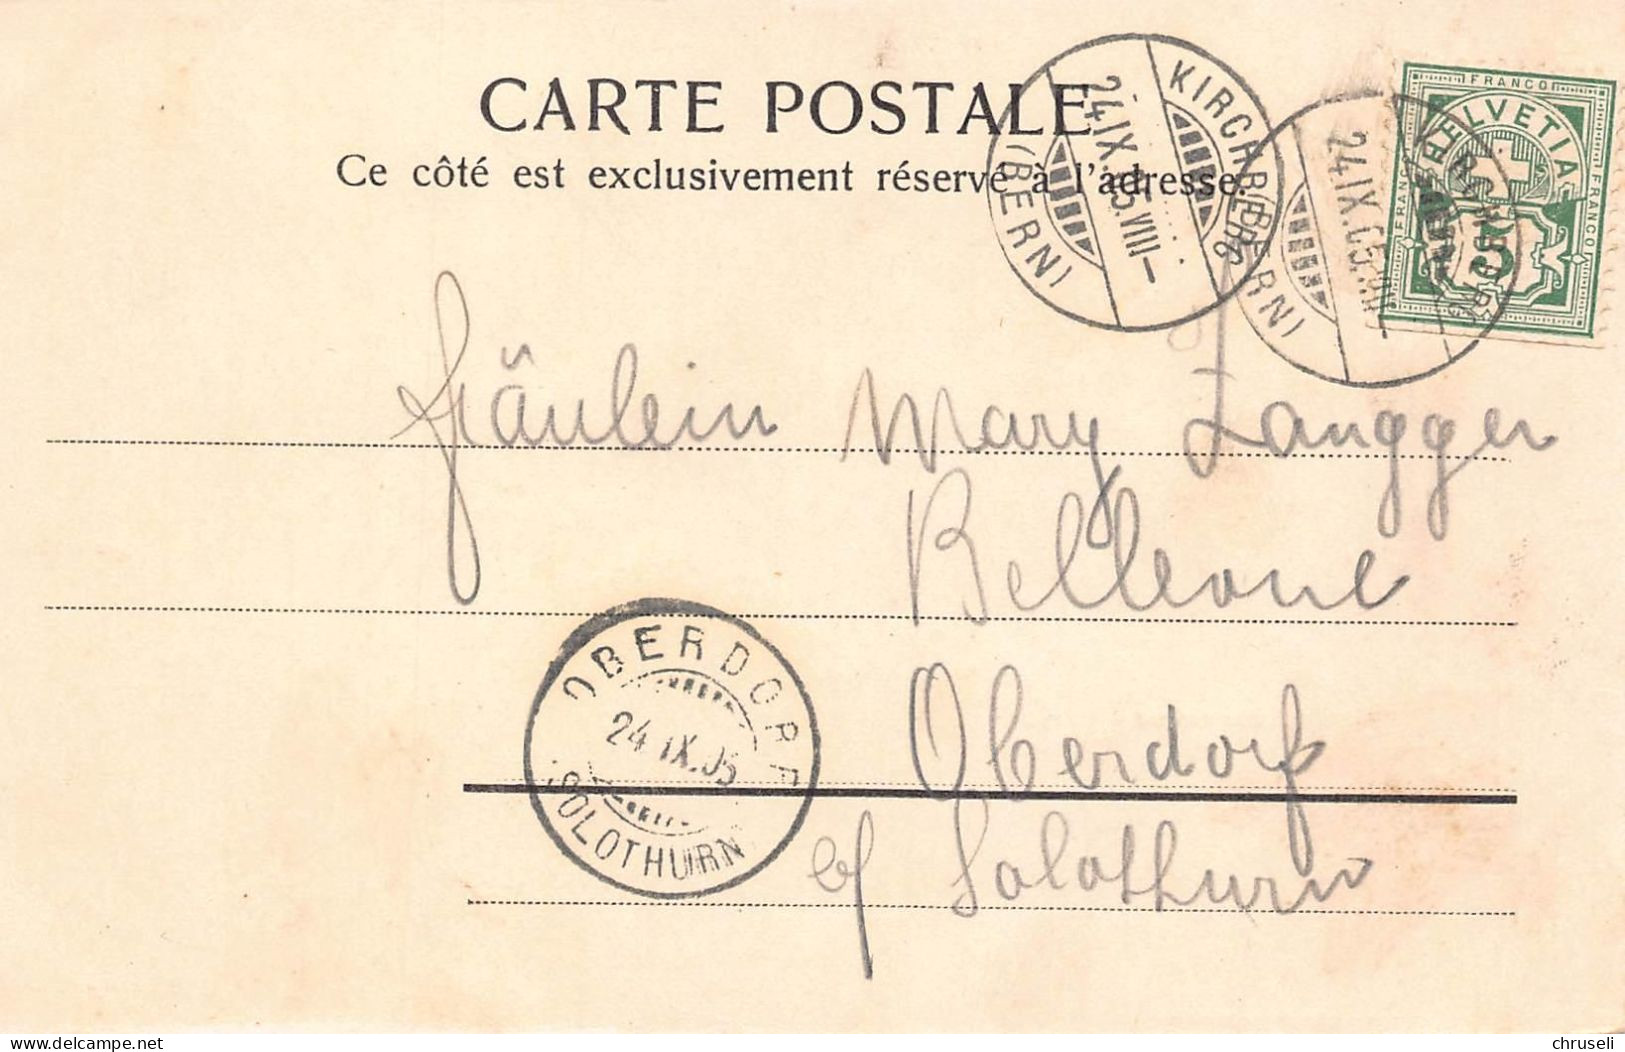 CARTE POSTALE
Ce côté est exclusivement réservé à l'adresse.
KIRCHBERG
24.IX.05.VIII-
(BERN)
KIRCHBERG
24.IX.05.VIII-
(BERN)
FRANCO
HELVETIA
FRANCO
FRANCO
5
Fräulein Mary Zangger
Bellevue
Oberdorf
b/ Solothurn
OBERDORF
24.IX.05
(SOLOTHURN)
www.delcampe.net
chruseli